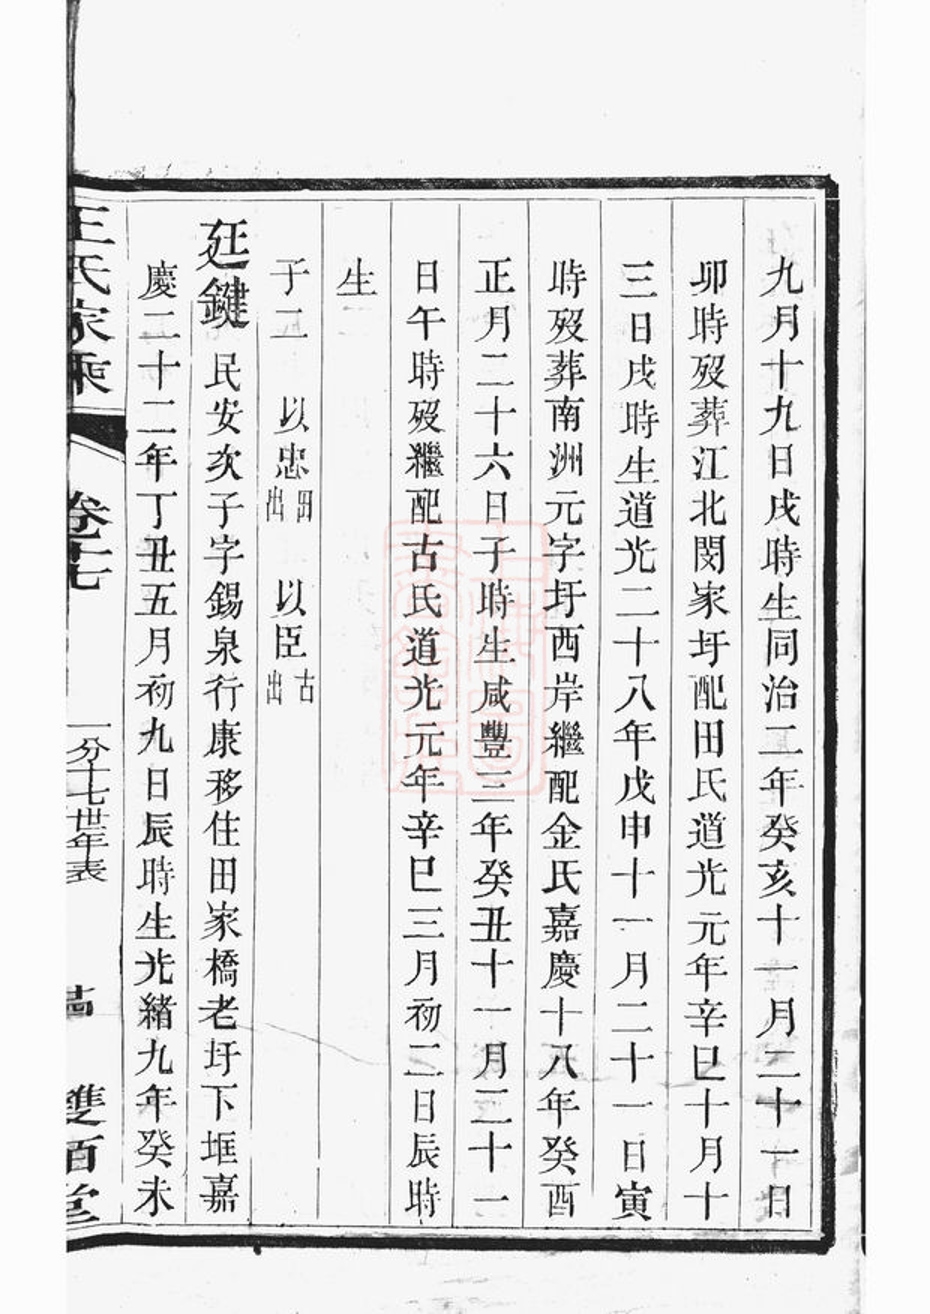 九月十九日戌時生同治二年癸亥十一月二十一日
卯時歿葬江北閔家圩配田氏道光元年辛巳十月十
三日戌時生道光二十八年戊申十一月二十一日寅
時歿葬南洲元字圩西岸繼配金氏嘉慶十八年癸酉
正月二十六日子時生咸豐三年癸丑十一月二十一
日午時歿繼配古氏道光元年辛巳三月初二日辰時
生
子二 以忠田出 以臣古出
廷鍵 民安次子字錫泉行康移住田家橋老圩下堀嘉
慶二十二年丁丑五月初九日辰時生光緒九年癸未
王氏家乘 卷七 一分十七世年表 雙百堂